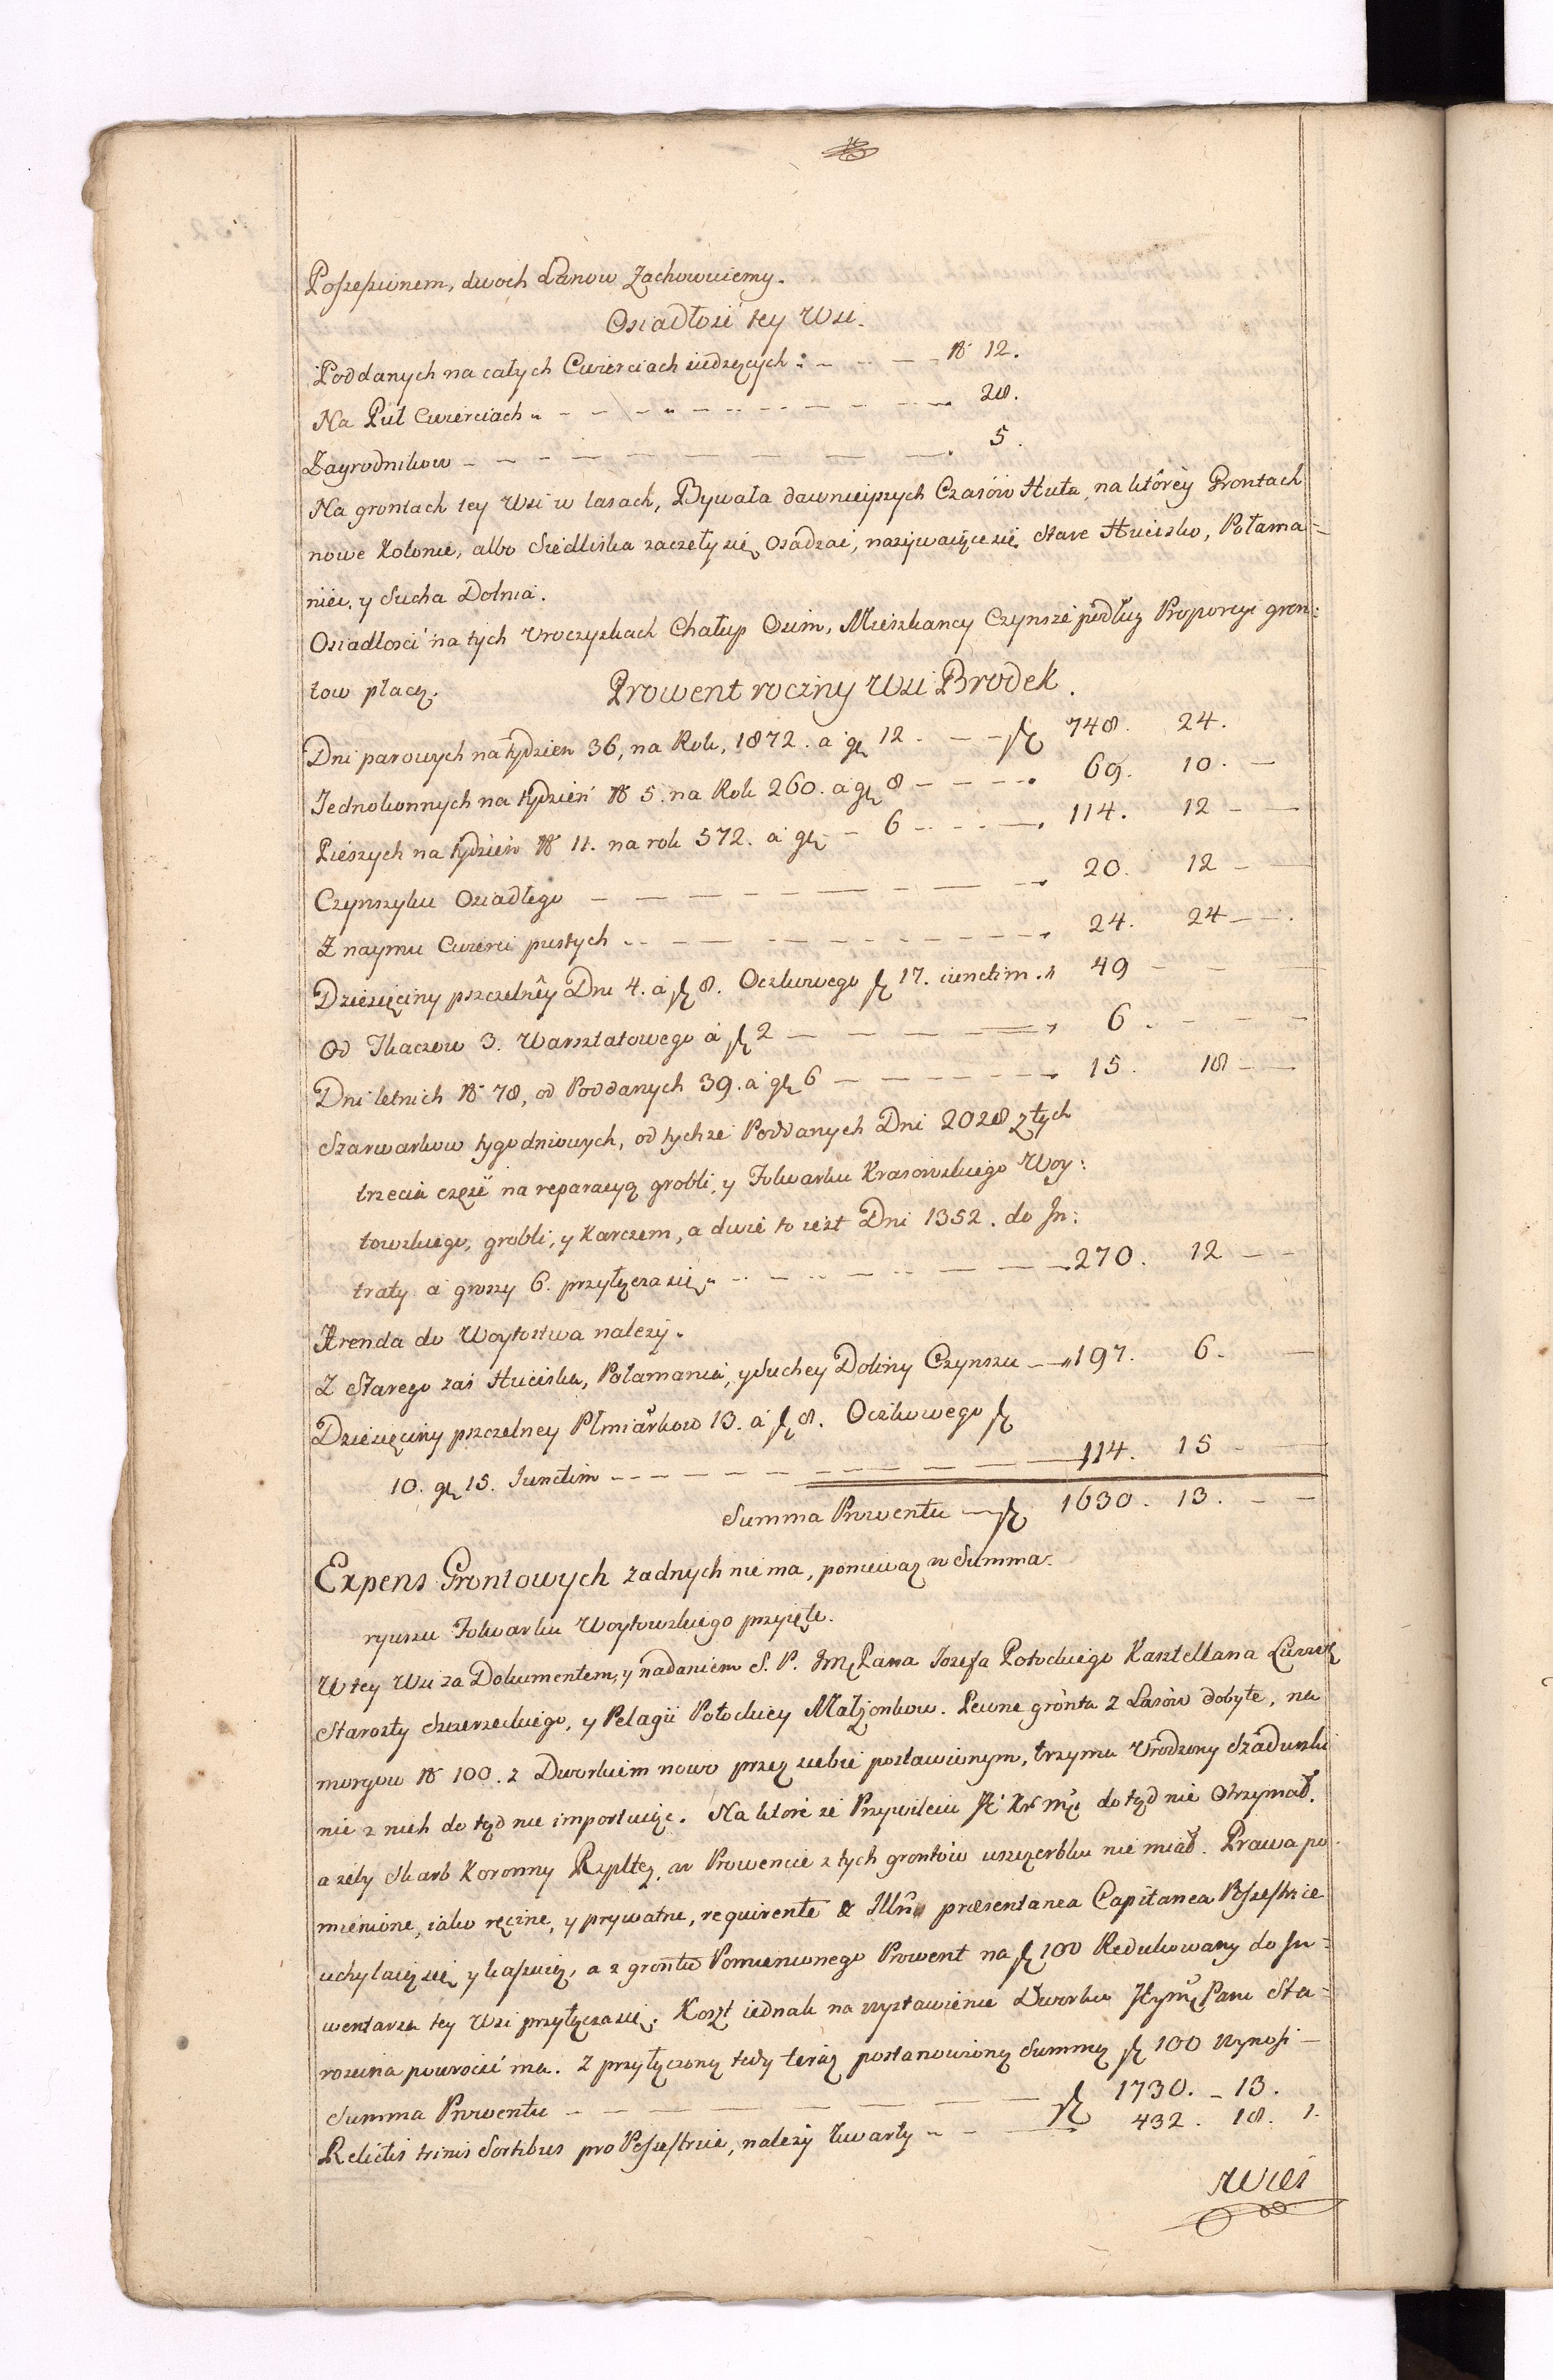 Possessionem, dwoch Łanow Zachowuiemy.
Osiadłość tey Wsi.
Poddanych na całych Cwierciach siedzących: — — № 12.
Na Puł Cwierciach — — 28.
Zagrodnikow — — 5.
Na grontach tey Wsi w lasach, Bywała dawnieyszych Czasów Huta, na którey Grontach
nowe Kolonie, albo Siedliska zaczeły się osadzać, nazywaiące się Stare Hucisko, Połama=
niec, y Sucha Dolina.
Osiadłości na tych Vroczyskach Chałup Osim, Mieszkancy Czynsze podług Proporcyi gron:
tow płacą.
Prowent roczny Wsi Brodek.
Dni parowych na tydzien 36, na Rok, 1872. a gł 12. — — fł 748. 24.
Jednokonnych na tydzień № 5. na Rok 260. a gł 8 — — 69. 10. —
Pieszych na tydzień № 11. na rok 572. a gł — 6 — — 114. 12 — —
Czynszyku Osiadłego — — 20. 12 — —
Z naymu Cwierci pustych — — 24. 24 — —
Dziesięciny pszczelney Dni 4. a fł 8. Oczkowego fł 17. iunctim. 49 — —
Od Tkaczow 3. Warsztatowego a fł 2 — — 6. — —
Dni letnich № 78, od Poddanych 39. a gł 6 — — 15. 18 — —
Szarwarkow tygodniowych, od tychże Poddanych Dni 2028 z tych
trzecia część na reparacyą grobli, y Folwarku Krasowskiego Woy:
towskiego, grobli, y Karczem, a dwie to iest Dni 1352. do In:
traty a groszy 6. przyłącza się — — 270. 12 — —
Arenda do Woytostwa należy.
Z Starego zaś Huciska, Połamania, y Suchey Doliny Czynszu — 197. 6. —
Dziesięciny pszczelney Płmiarkow 13. a fł 8. Oczkowego fł
10. gł 15. Iunctim — — 114. 15 — —
Summa Prowentu — fł 1630. 13. — —
Expens Grontowych żadnych nie ma, ponieważ w Summa:
ryuszu Folwarku Woytowskiego przyięte.
W tey Wsi za Dokumentem, y nadaniem S. P. Jmć Pana Jozefa Potockiego Kasztellana
Starosty Szczerzeckiego, y Pelagii Potockiey Małżonkow. Pewne grónta z Lasów dobyte, na
morgow № 100. z Dworkiem nowo przez siebie postawionym, trzyma Vrodzony Szadurski
nic z nich do tąd nie importuiąc. Na które że Przywileiu do tąd nie otrzymał.
a żeby Skarb Koronny Rzpltey, w Prowencie z tych grontów uszczerbku nie miał. Prawa po
mienione, iako ręczne, y prywatne, requirente præsentanea Capitanea Possestrice
uchylaią się y kassuią, a z grontu Pomienionego Prowent na fł 100 Redukowany do In=
wentarza tey Wsi przyłącza się. Koszt iednak na wystawienie Dworku Pani Sta=
rościna powrócić ma. Z przyłączoną tedy teraz postanowioną Summą fł 100 wynosi —
Summa Prowentu — — fł 1730. — 13.
Relictis trinis Sortibus pro Possestrice, należy kwarty — — 432. 18. 1.
Wieś